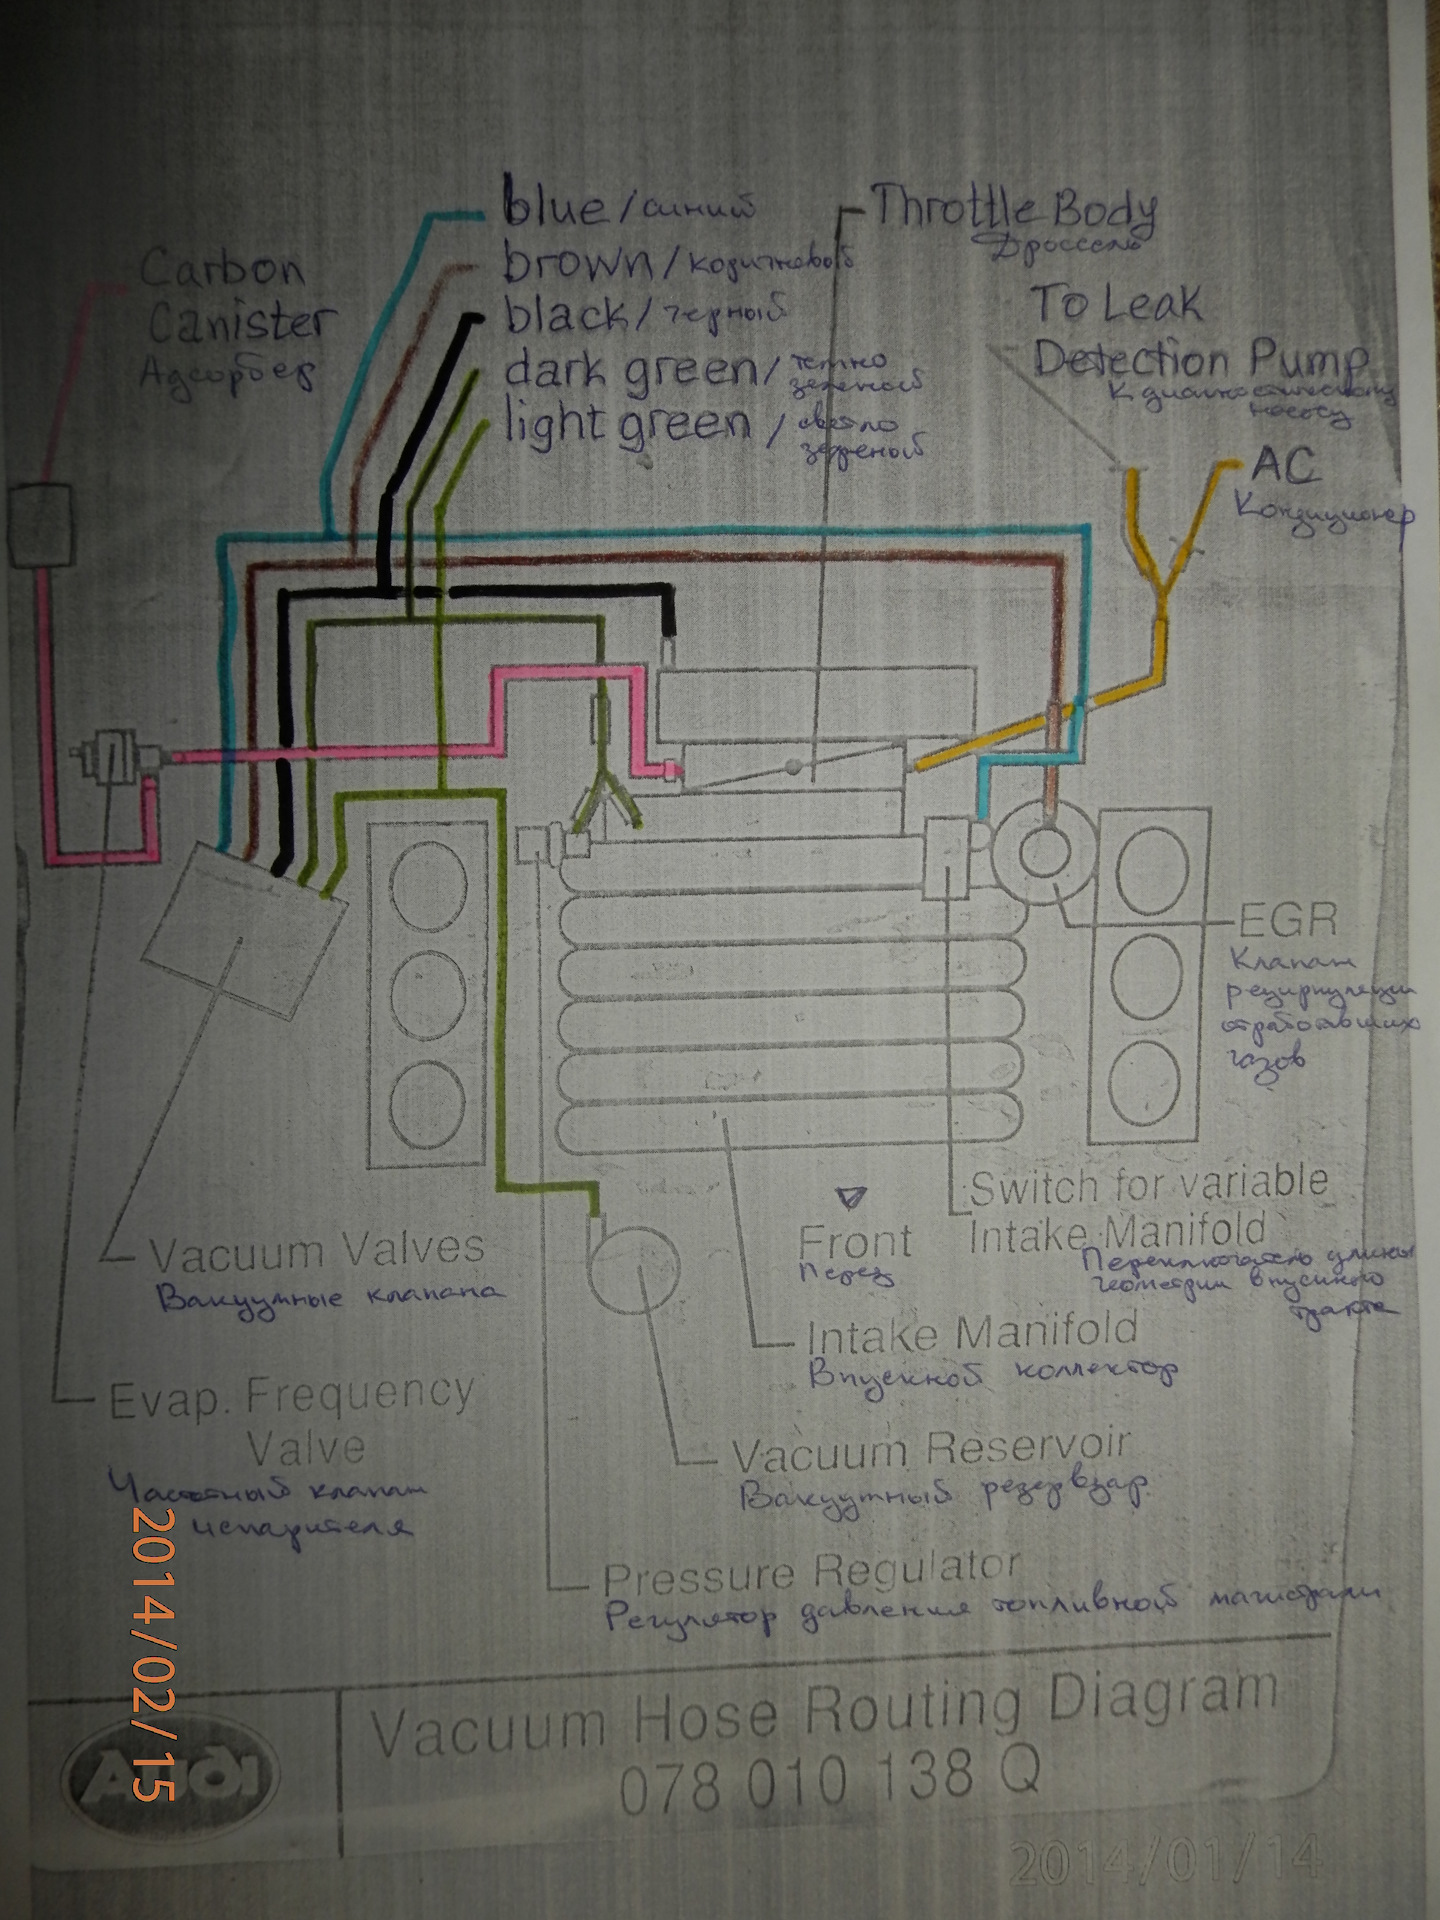 blue / синий
Throttle Body
Дроссель
brown / коричневый
Carbon
Canister
Адсорбер
black / черный
To Leak
Detection Pump
К диагностическому
насосу
dark green / темно
зеленый
light green / светло
зеленый
AC
Кондиционер
EGR
Клапан
рециркуляции
отработавших
газов
Switch for variable
Intake Manifold
Переключатель длины
геометрии впускного
тракта
Front
Перед
Vacuum Valves
Вакуумные клапана
Intake Manifold
Впускной коллектор
Evap. Frequency
Valve
Частотный клапан
испарителя
Vacuum Reservoir
Вакуумный резервуар
Pressure Regulator
Регулятор давления топливной магистрали
Audi
Vacuum Hose Routing Diagram
078 010 138 Q
2014/02/15
2014/01/14